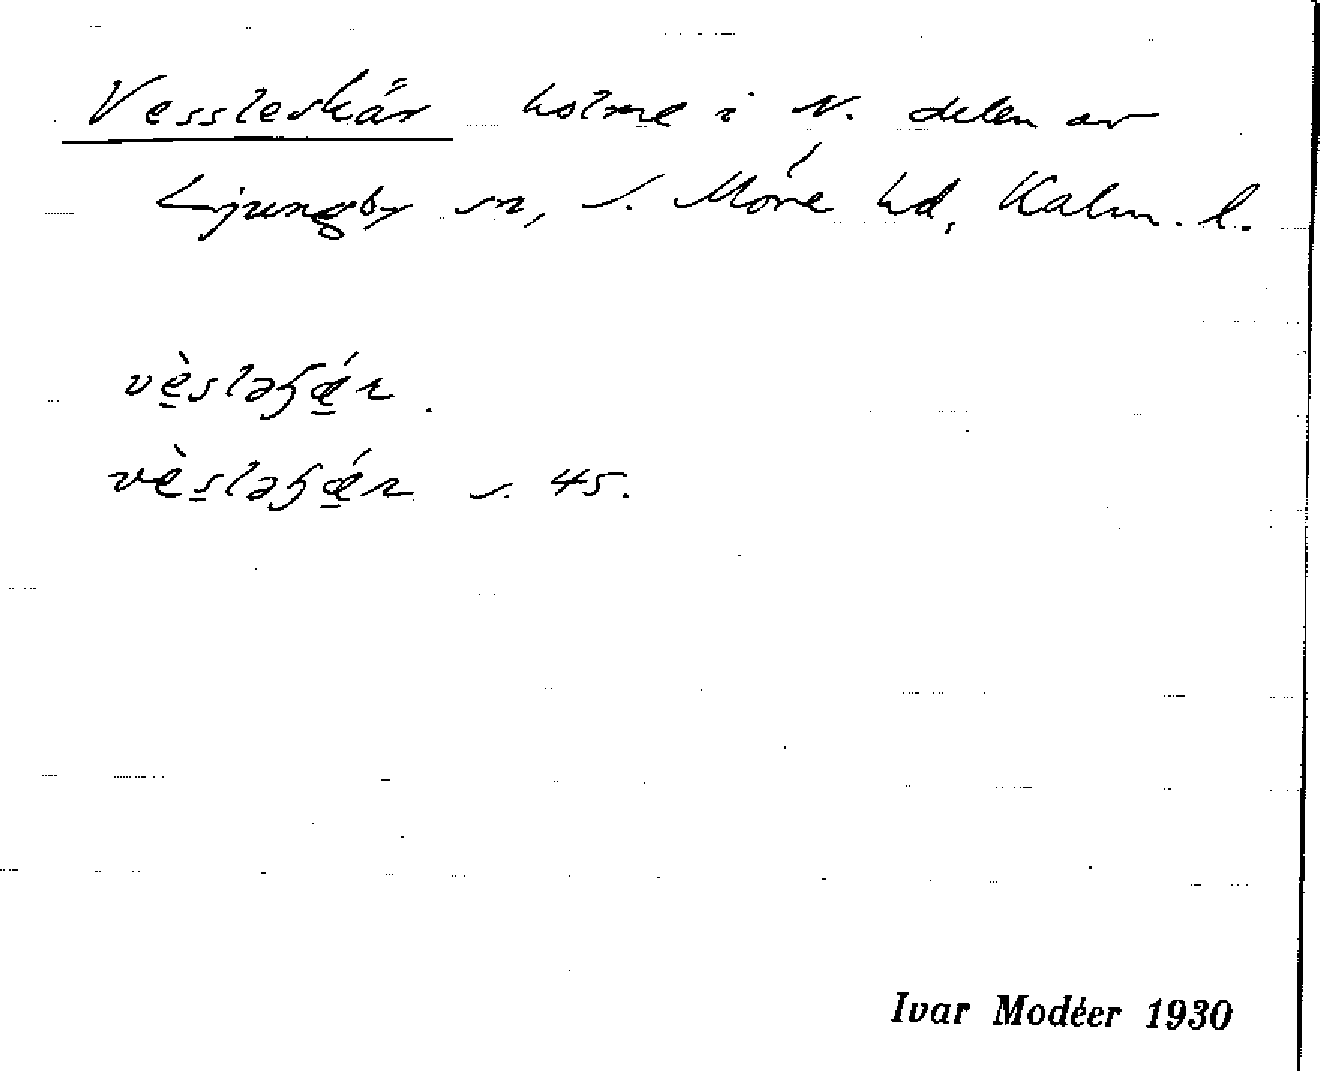 Vessleskär holme i N. delen av
Ljungby sn, S. Möre hd, Kalm. l.
vè̱slaɧǽ̱r.
vès̱laɧǽ̱r s. 45.
Ivar Modéer 1930